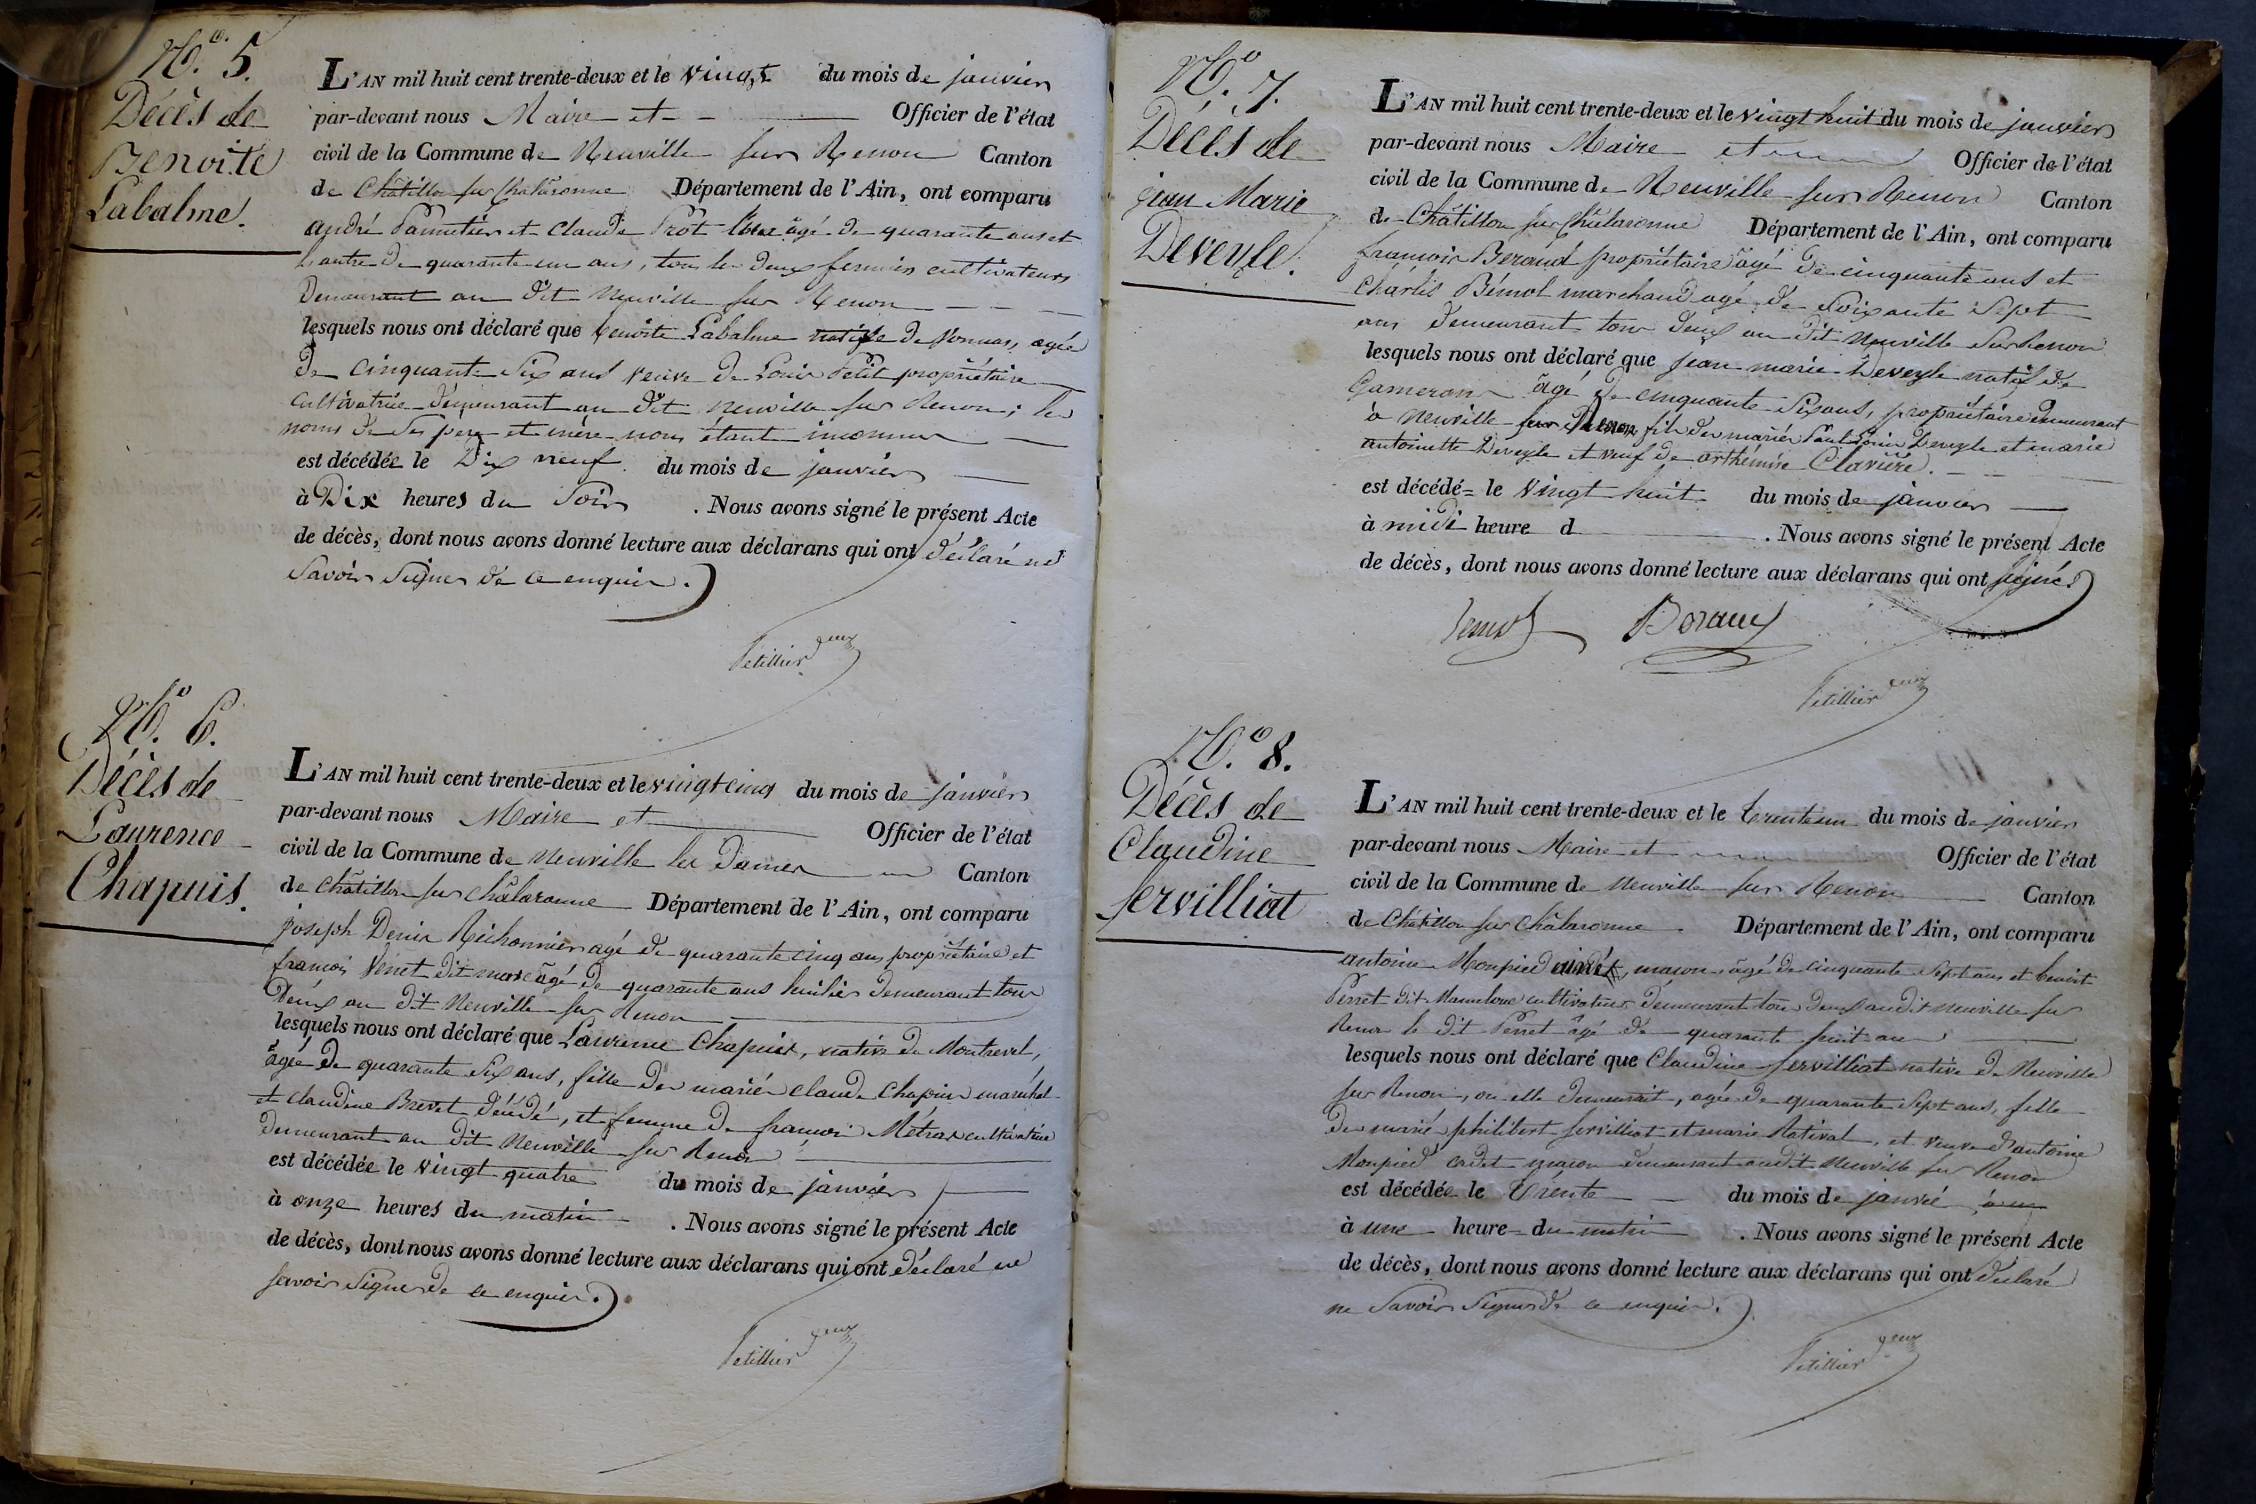 N.º 5.
Décès de
Benoite
Labalme.
L'AN mil huit cent trente-deux et le vingt du mois de janvier
par-devant nous Maire et Officier de l'état
civil de la Commune de Neuville sur Renon Canton
de Châtillon sur Chalaronne Département de l'Ain, ont comparu
andré Pannetier et claude Prôt l'un âgé de quarante ans et
l'autre de quarante un ans, tous les deux fermiers cultivateurs
Demeurant au dit Neuville sur Renon
lesquels nous ont déclaré que benoite Labalme native de Vonnas, agée
De cinquante six ans veuve de Louis Petit propriétaire
cultivatrice demeurant au dit neuville sur Renon; les
noms de ses père et mère nous étant inconnus
est décédée le Dix neuf du mois de janvier
à Dix heures du soir . Nous avons signé le présent Acte
de décès, dont nous avons donné lecture aux déclarans qui ont déclaré ne
savoir signer de ce enquis.
Petillier
N.º 6.
Décès de
Laurence
Chapuis.
L'AN mil huit cent trente-deux et le vingt cinq du mois de janvier
par-devant nous Maire et Officier de l'état
civil de la Commune de neuville les Dames Canton
de Châtillon sur Chalaronne Département de l'Ain, ont comparu
joseph Denis Réchonnier agé de quarante cinq ans propriétaire et
francois Venet dit marc âgé de quarante ans huilier demeurant tous
Deux au dit Neuville sur Renon
lesquels nous ont déclaré que Laurence Chapuis, native de Montrevel,
âgée de quarante six ans, fille des mariés claude Chapuis maréchal
et claudine Brevet décédé, et femme de francois Métras cultivatrice
demeurant au dit Neuville sur Renon
est décédée le vingt quatre du mois de janvier
à onze heures du matin . Nous avons signé le présent Acte
de décès, dont nous avons donné lecture aux déclarans qui ont déclaré ne
savoir signer de ce enquis.
Petillier
N.º 7.
Décès de
jean Marie
Deveyle.
L'AN mil huit cent trente-deux et le vingt huit du mois de janvier
par-devant nous Maire et Officier de l'état
civil de la Commune de Neuville sur Renon Canton
de Châtillon sur Chalaronne Département de l'Ain, ont comparu
francois Beraud propriétaire âgé de cinquante ans et
Charles Bémol marchand agé de soixante sept
ans demeurant tous deux au dit Neuville sur Renon
lesquels nous ont déclaré que jean marie Deveyle natif de
Gamerans âgé de cinquante six ans, propriétaire demeurant
à Neuville sur Renon fils des mariés Paul Louis Deveyle et marie
antoinette Deveyle et veuf de arthémise Clavière.
est décédé le vingt huit du mois de janvier
à midi heure d . Nous avons signé le présent Acte
de décès, dont nous avons donné lecture aux déclarans qui ont signé.
Beraud
Petillier
N.º 8.
Décès de
Claudine
Servilliat
L'AN mil huit cent trente-deux et le trente un du mois de janvier
par-devant nous Maire et Officier de l'état
civil de la Commune de Neuville sur Renon Canton
de Châtillon sur Chalaronne Département de l'Ain, ont comparu
antoine Monpied maçon âgé de cinquante sept ans et benoit
Perret dit cultivateur demeurant tous deux au dit neuville sur
Renon le dit Perret âgé de quarante huit ans
lesquels nous ont déclaré que Claudine Servilliat native de Neuville
sur Renon, ou elle demeurait, agée de quarante sept ans, fille
De mariés philibert Servilliat et marie Rativat, et veuve d'antoine
Monpied cadet maçon demeurant audit Neuville sur Renon
est décédée le Trente du mois de janvié à un
à une heure du matin . Nous avons signé le présent Acte
de décès, dont nous avons donné lecture aux déclarans qui ont déclaré
ne savoir signer de ce enquis.
Petillier